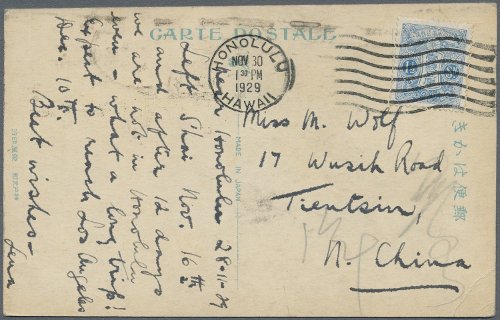 CARTE POSTALE
HONOLULU
NOV 30
1 30 PM
1929
HAWAII
Near Honolulu 28-11-29
Left Shai Nov. 16th
and after 12 days
we are not in Honolulu
even - what a long trip!
Expect to reach Los Angeles
Dec. 10th.
Best wishes -
Lena
MADE IN JAPAN
Miss M. Wolf
17 Wusih Road
Tientsin,
N. China
きかは便郵